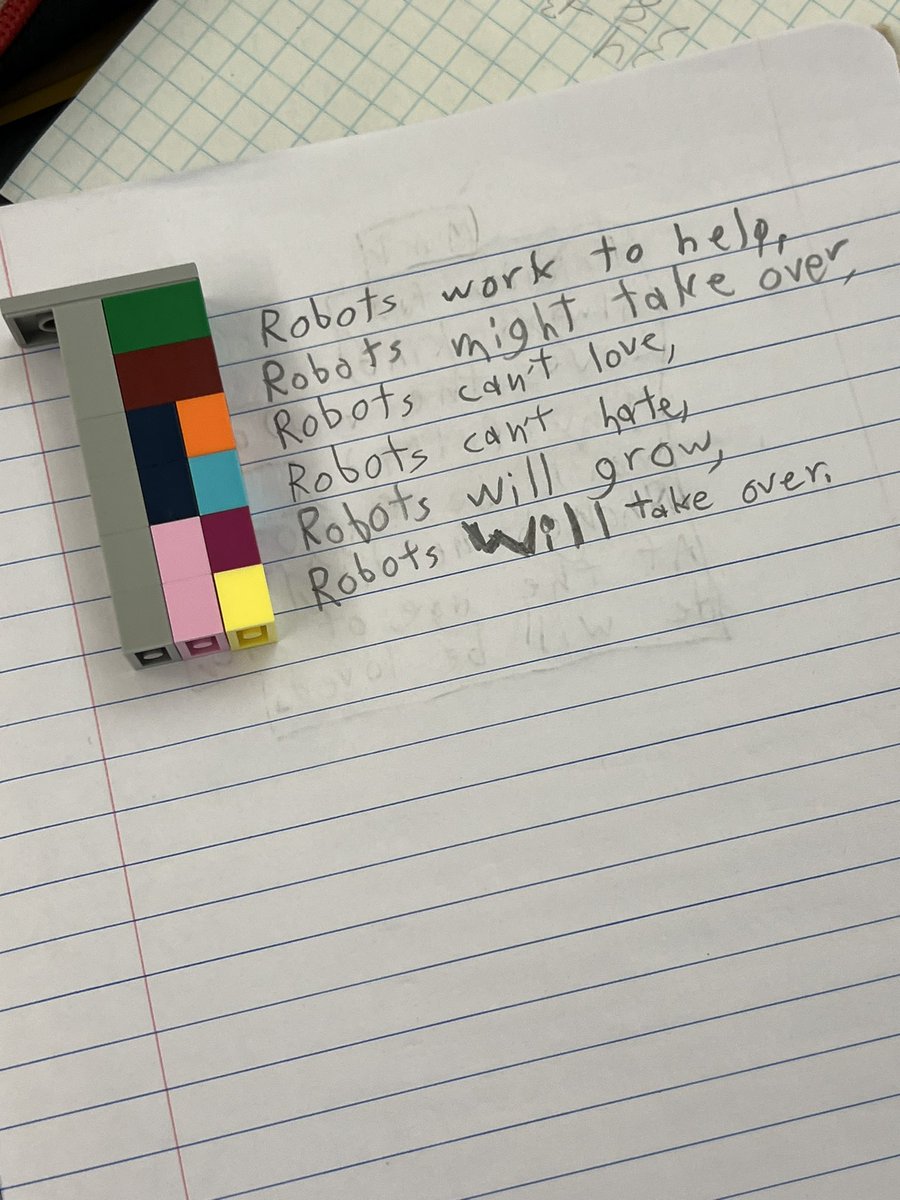 Robots work to help,
Robots might take over,
Robots can't love,
Robots can't hate,
Robots will grow,
Robots will take over.